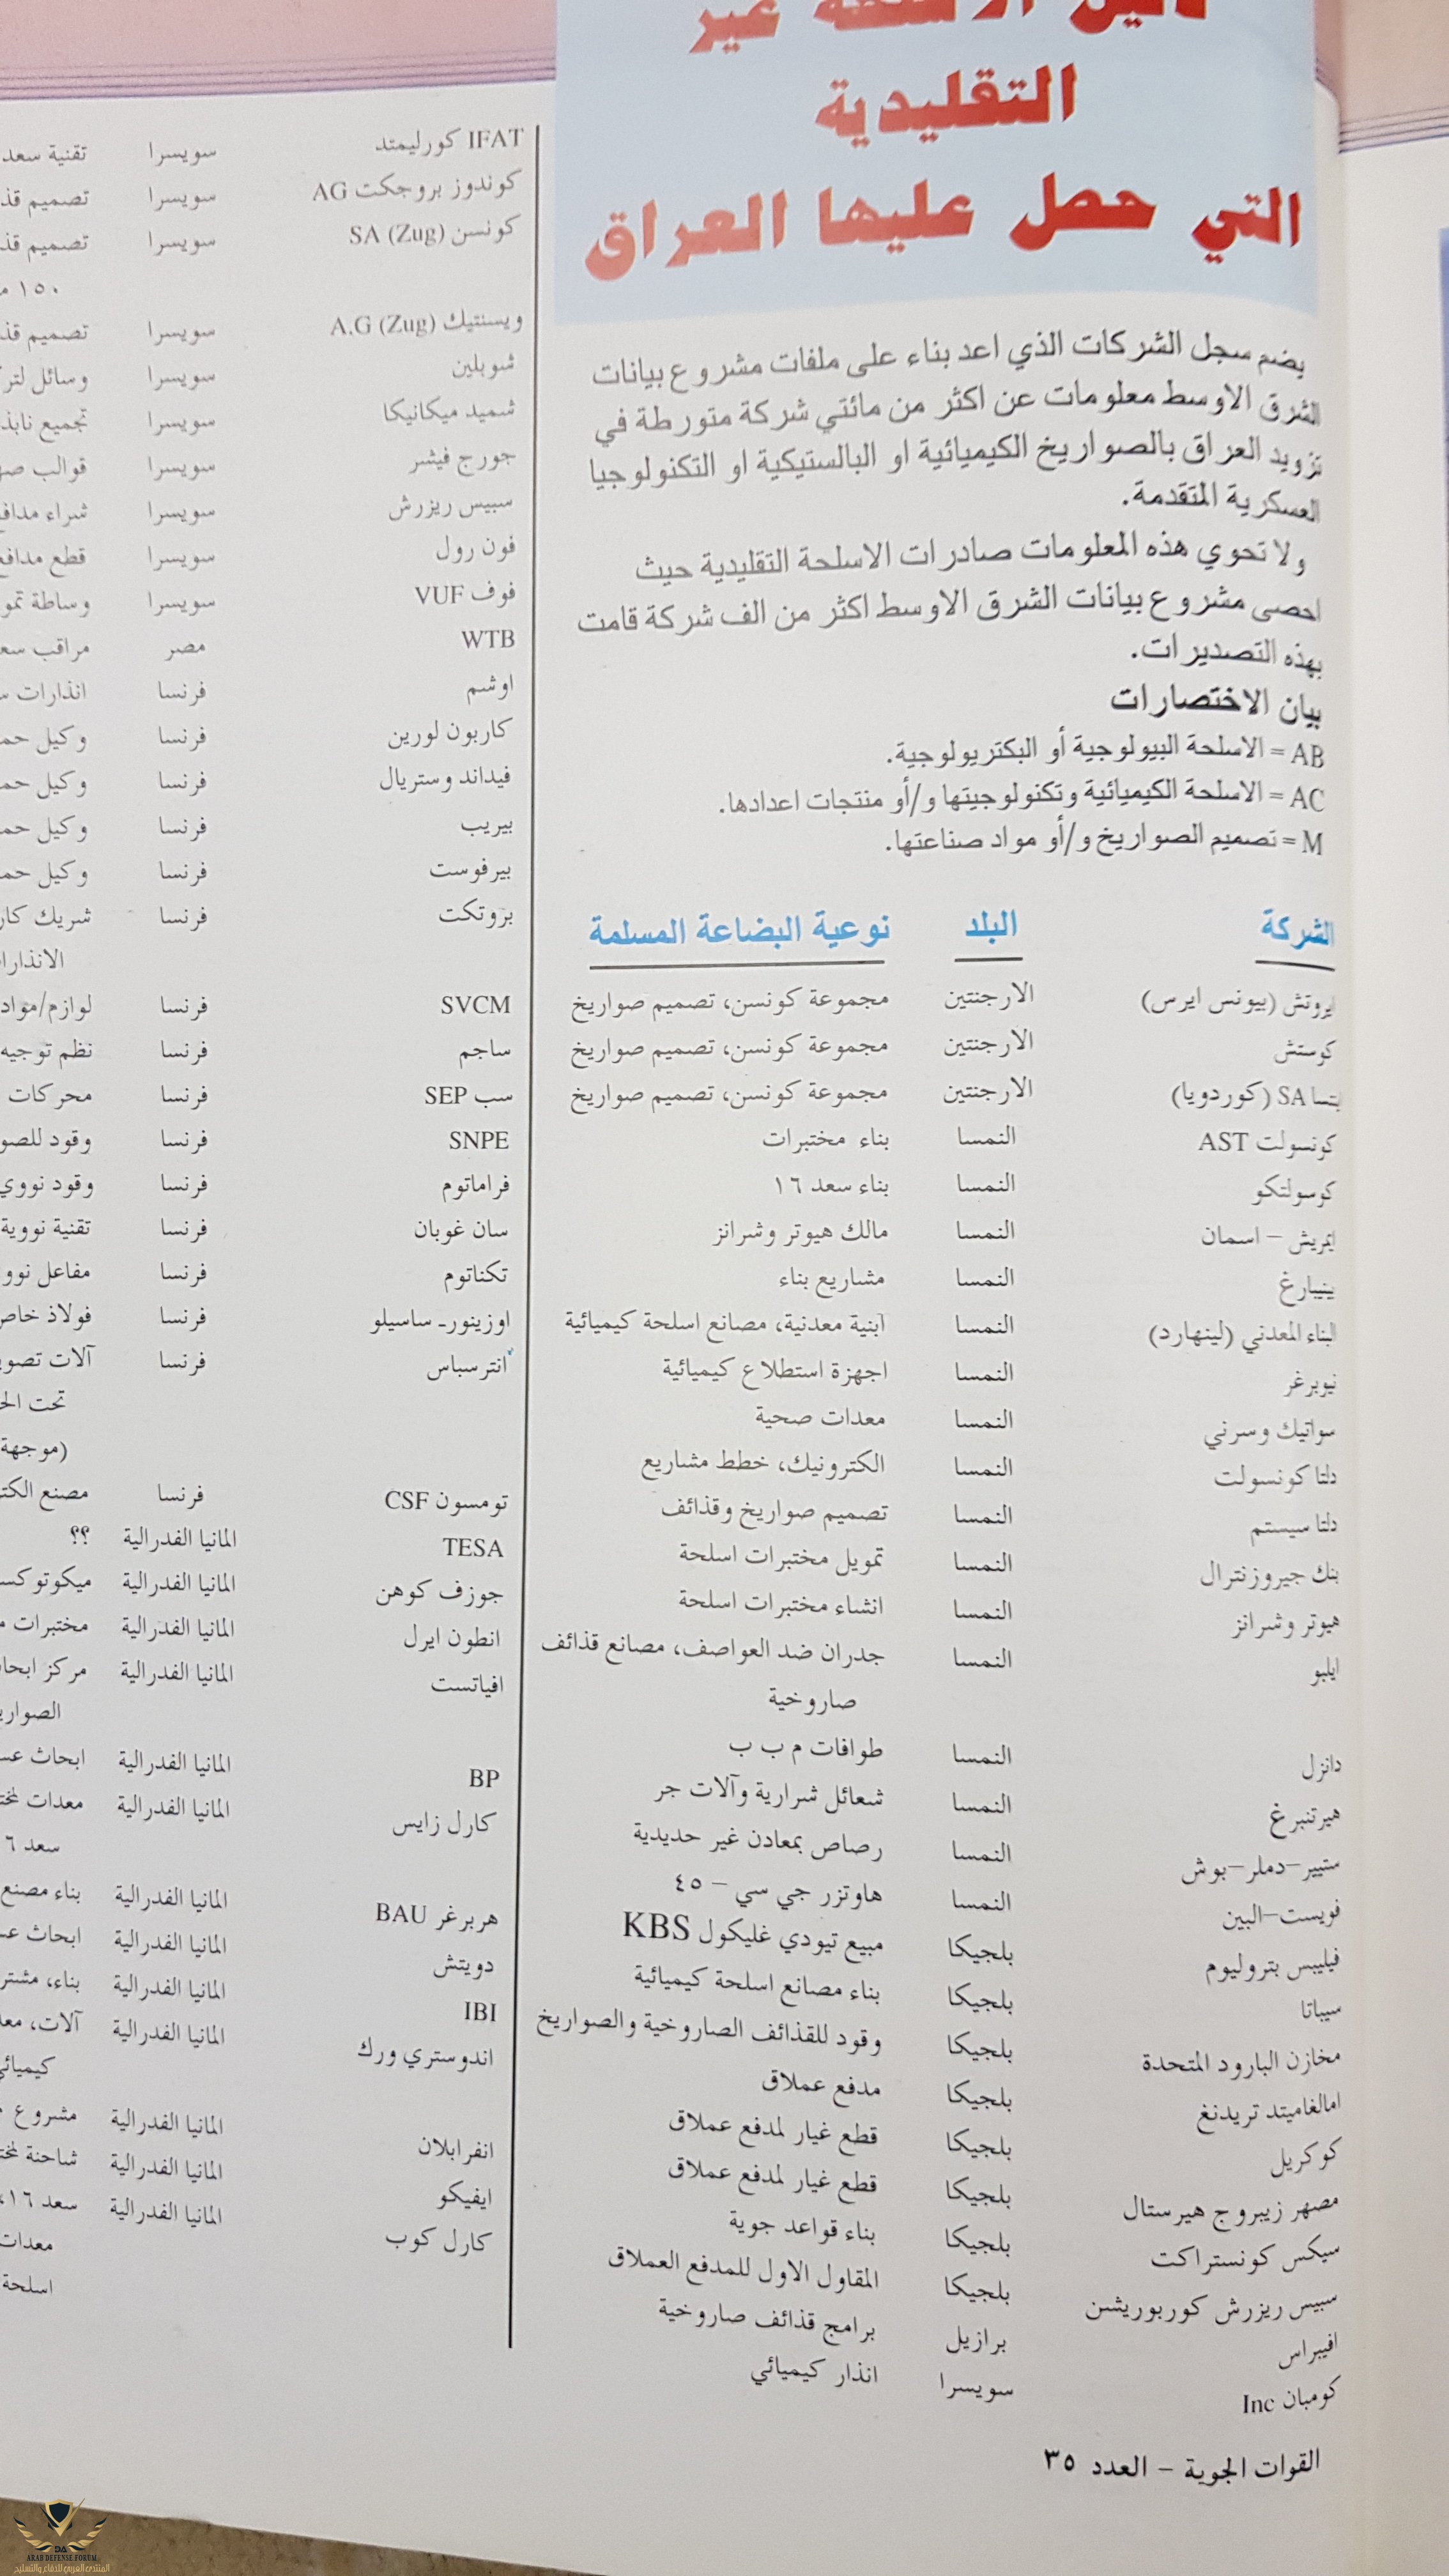 دليل الاسلحة غير
التقليدية
التي حصل عليها العراق
يضم سجل الشركات الذي اعد بناء على ملفات مشروع بيانات
الشرق الاوسط معلومات عن اكثر من مائتي شركة متورطة في
تزويد العراق بالصواريخ الكيميائية او البالستيكية او التكنولوجيا
العسكرية المتقدمة.
ولا تحوي هذه المعلومات صادرات الاسلحة التقليدية حيث
احصى مشروع بيانات الشرق الاوسط اكثر من الف شركة قامت
بهذه التصديرات.
بيان الاختصارات
AB = الاسلحة البيولوجية أو البكتريولوجية.
AC = الاسلحة الكيميائية وتكنولوجيتها و/أو منتجات اعدادها.
M = تصميم الصواريخ و/أو مواد صناعتها.
الشركة البلد نوعية البضاعة المسلمة
ايروتش (بيونس ايرس) الارجنتين مجموعة كونسن، تصميم صواريخ
كوستش الارجنتين مجموعة كونسن، تصميم صواريخ
SA (كوردوبا) الارجنتين مجموعة كونسن، تصميم صواريخ
كونسولت AST النمسا بناء مختبرات
كوسولتكو النمسا بناء سعد ١٦
ايمريش – اسمان النمسا مالك هيوتر وشرانز
النمسا مشاريع بناء
البناء المعدني (لينهارد) النمسا ابنية معدنية، مصانع اسلحة كيميائية
نيوبرغر النمسا اجهزة استطلاع كيميائية
سواتيك وسرني النمسا معدات صحية
دلتا كونسولت النمسا الكترونيك، خطط مشاريع
دلتا سيستم النمسا تصميم صواريخ وقذائف
بنك جيروزنترال النمسا تمويل مختبرات اسلحة
هيوتر وشرانز النمسا انشاء مختبرات اسلحة
ايلبو النمسا جدران ضد العواصف، مصانع قذائف
صاروخية
دانزل النمسا طوافات م ب ب
هيرتنبرغ النمسا شعائل شرارية وآلات جر
ستيير–دملر–بوش النمسا رصاص بمعادن غير حديدية
فويست–البين النمسا هاوتزر جي سي – ٤٥
فيليبس بتروليوم بلجيكا مبيع تيودي غليكول KBS
سيباتا بلجيكا بناء مصانع اسلحة كيميائية
مخازن البارود المتحدة بلجيكا وقود للقذائف الصاروخية والصواريخ
امالغاميتد تريدنغ بلجيكا مدفع عملاق
كوكريل بلجيكا قطع غيار لمدفع عملاق
مصهر زيبروج هيرستال بلجيكا قطع غيار لمدفع عملاق
سيكس كونستراكت بلجيكا بناء قواعد جوية
سبيس ريزرش كوربوريشن بلجيكا المقاول الاول للمدفع العملاق
افيبراس برازيل برامج قذائف صاروخية
كومبان Inc سويسرا انذار كيميائي
IFAT كورليمتد سويسرا تقنية سعد
كوندوز بروجكت AG سويسرا تصميم
كونسن SA (Zug) سويسرا تصميم
١٥٠
ويسنتيك A.G (Zug) سويسرا تصميم
شوبلين سويسرا وسائل
شميد ميكانيكا سويسرا تجميع
جورج فيشر سويسرا قوالب
سبيس ريزرش سويسرا شراء
فون رول سويسرا قطع
فوف VUF سويسرا وساطة
WTB مصر مراقب
اوشم فرنسا انذارات
كاربون لورين فرنسا وكيل
فيداند وستريال فرنسا وكيل
بيريب فرنسا وكيل
بيرفوست فرنسا وكيل
بروتكت فرنسا شريك
SVCM فرنسا لوازم/مواد
ساجم فرنسا نظم توجيه
سب SEP فرنسا محركات
SNPE فرنسا وقود
فراماتوم فرنسا وقود نووي
سان غوبان فرنسا تقنية نووية
تكناتوم فرنسا مفاعل
اوزينور- ساسيلو فرنسا فولاذ
انترسباس فرنسا آلات
تحت
(موجهة
تومسون CSF فرنسا مصنع
TESA المانيا الفدرالية ؟؟
جوزف كوهن المانيا الفدرالية
انطون ايرل المانيا الفدرالية مختبرات
افياتست المانيا الفدرالية مركز
BP المانيا الفدرالية ابحاث
كارل زايس المانيا الفدرالية معدات
سعد
هربرغر BAU المانيا الفدرالية بناء مصنع
دويتش المانيا الفدرالية ابحاث
IBI المانيا الفدرالية بناء،
اندوستري ورك المانيا الفدرالية آلات،
انفرابلان المانيا الفدرالية مشروع
ايفيكو المانيا الفدرالية شاحنة
كارل كوب المانيا الفدرالية سعد ١٦،
معدات
اسلحة
القوات الجوية – العدد ٣٥
DA
ARAB DEFENSE FORUM
المنتدى العربي للدفاع والتسليح